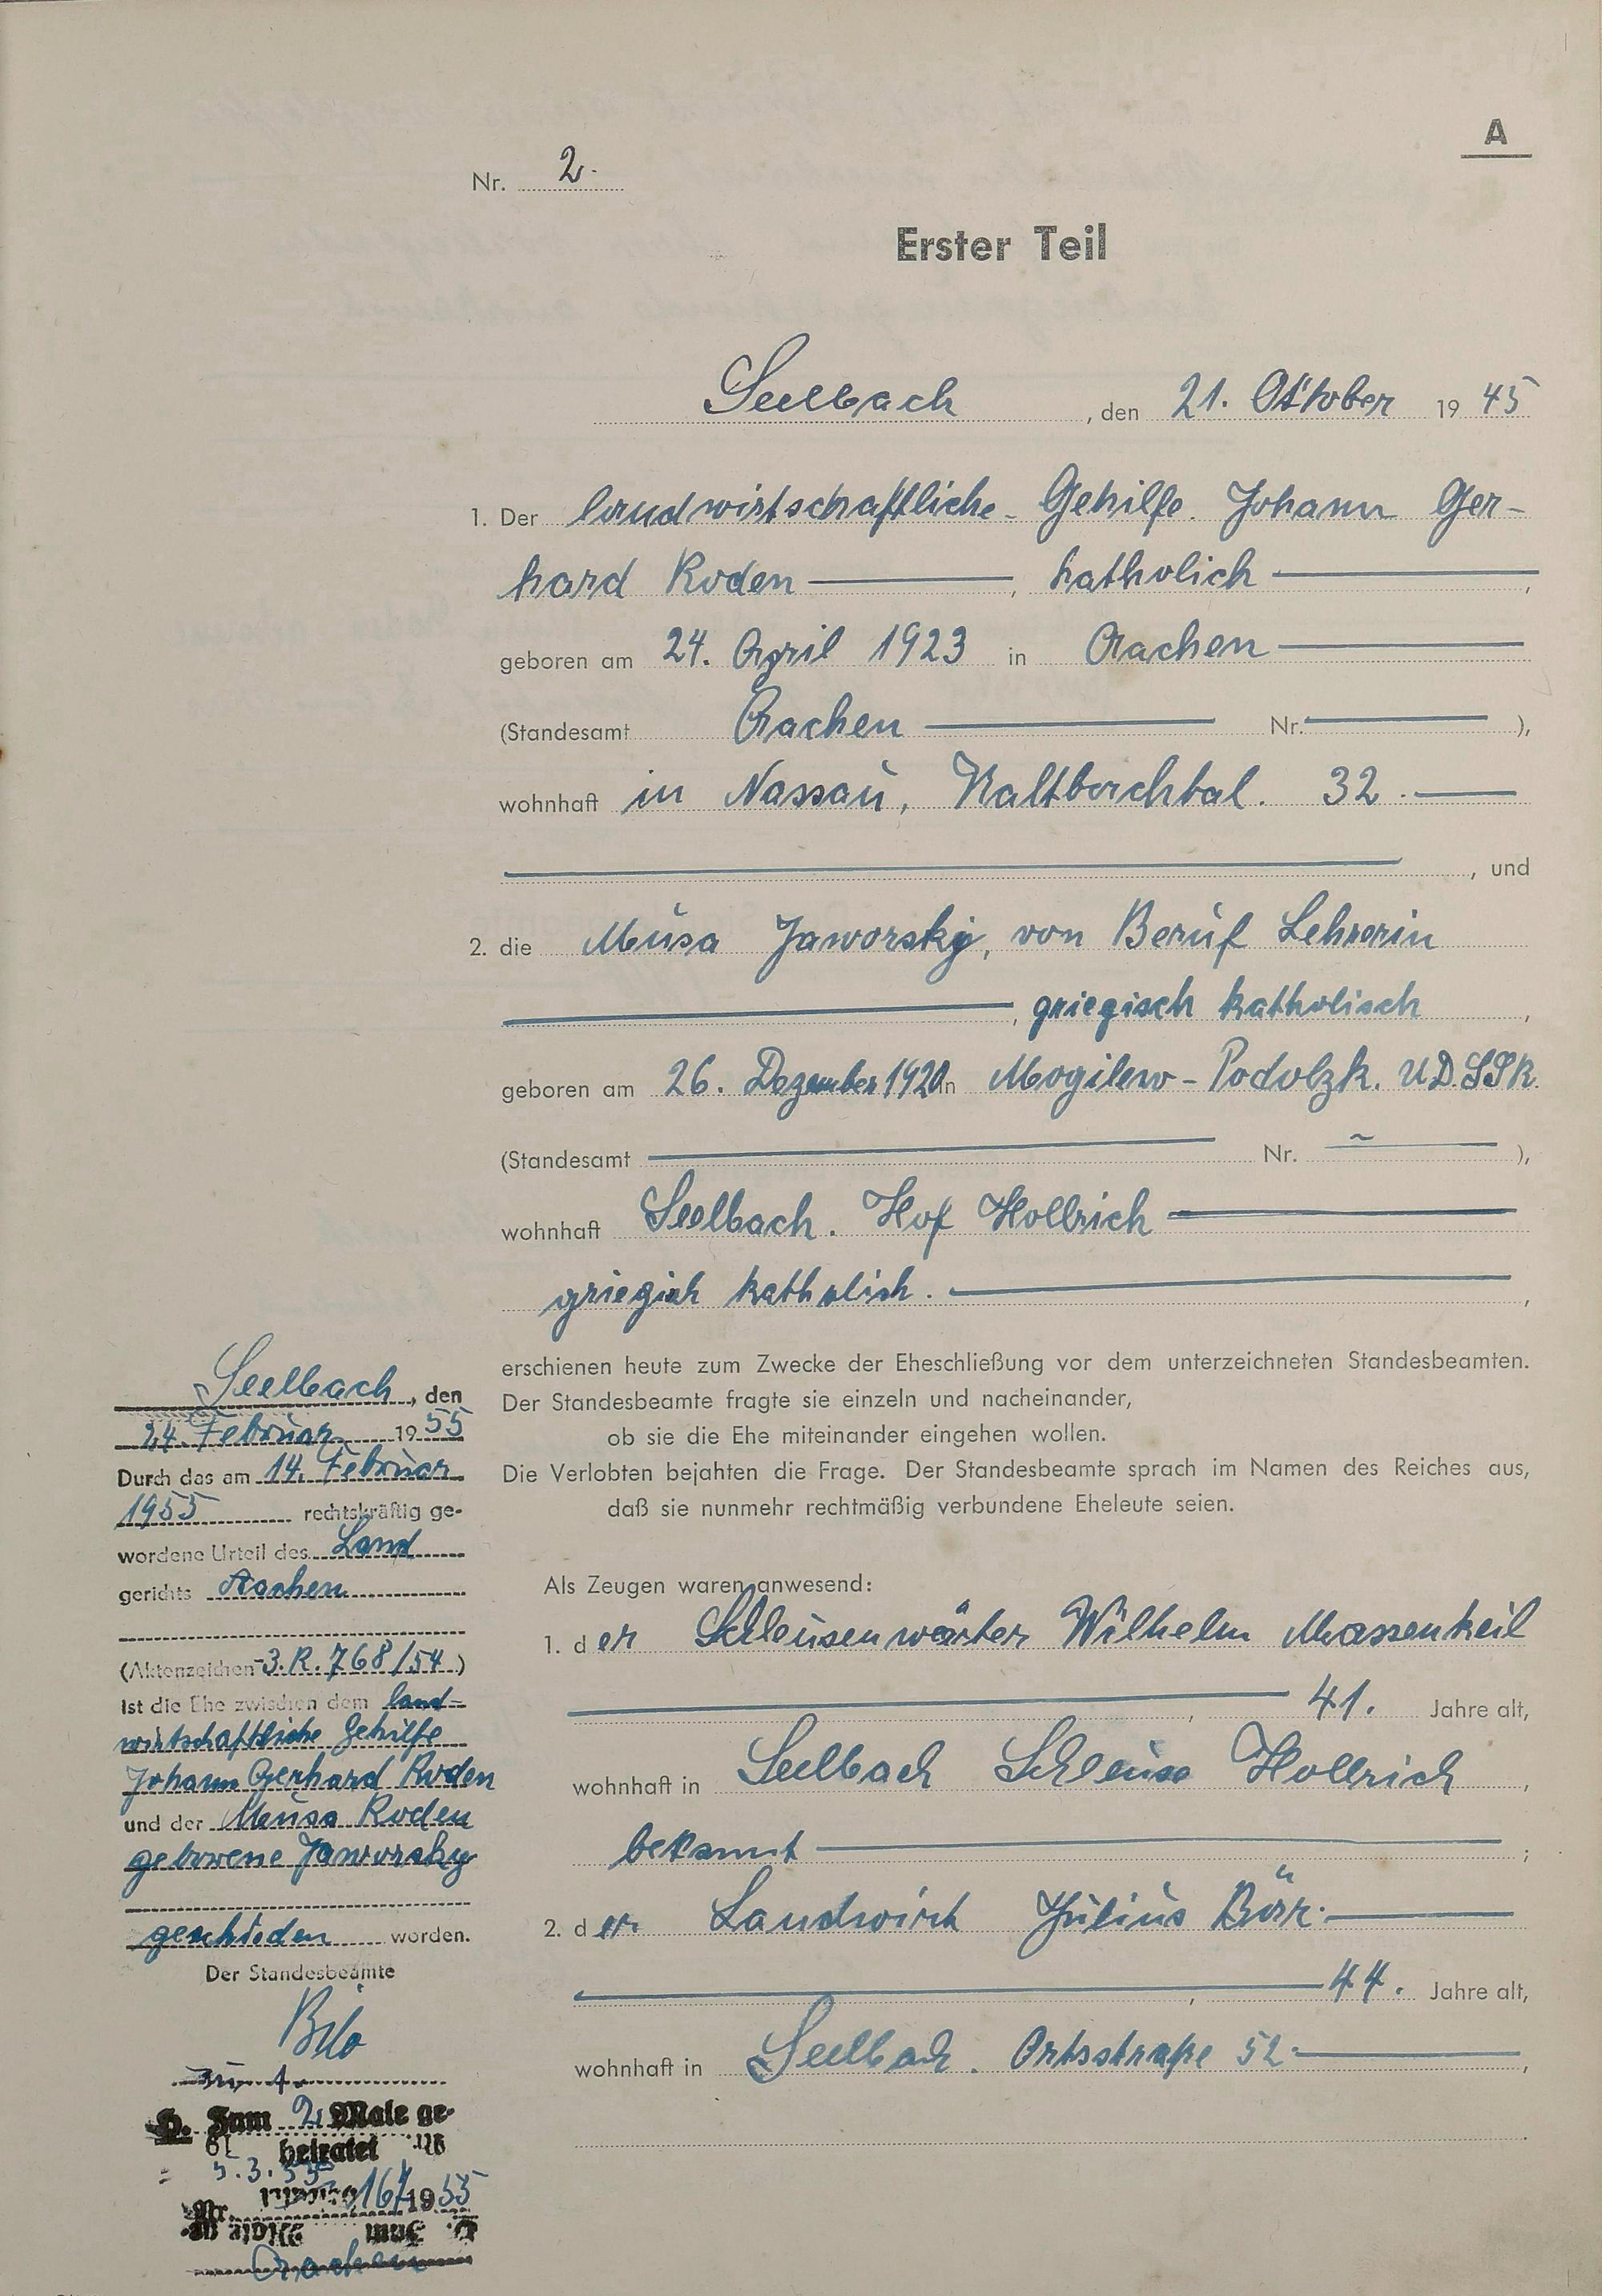 A
Nr. 2.
Erster Teil
Seelbach, den 21. Oktober 1945
1. Der landwirtschaftliche- Gehilfe. Johann Ger-
hard Roden, katholich,
geboren am 24. April 1923 in Aachen
(Standesamt Aachen Nr. ),
wohnhaft in Nassau, Kaltbachtal. 32.
, und
2. die Musa Jaworsky, von Beruf Lehrerin
, griegisch katholisch,
geboren am 26. Dezember 1920 in Mogilew-Podolzk. UD.SSR.
(Standesamt Nr. ),
wohnhaft Seelbach. Hof Hollrich
griegich katholich.,
erschienen heute zum Zwecke der Eheschließung vor dem unterzeichneten Standesbeamten.
Der Standesbeamte fragte sie einzeln und nacheinander,
ob sie die Ehe miteinander eingehen wollen.
Die Verlobten bejahten die Frage. Der Standesbeamte sprach im Namen des Reiches aus,
daß sie nunmehr rechtmäßig verbundene Eheleute seien.
Als Zeugen waren anwesend:
1. der Schleusenwärter Wilhelm Massenkeil
, 41. Jahre alt,
wohnhaft in Seelbach Schleuse Hollrich,
bekannt;
2. der Landwirt Julius Börr.
, 44. Jahre alt,
wohnhaft in Seelbach. Ortsstraße 52.,
Seelbach, den
24. Februar 1955
Durch das am 14. Februar
1955 rechtskräftig ge-
wordene Urteil des Land
gerichts Aachen
(Aktenzeichen -3.R.768/54)
ist die Ehe zwischen dem land-
wirtschaftliche Gehilfe
Johann Gerhard Roden
und der Musa Roden
geborene Jaworsky
geschieden worden.
Der Standesbeamte
H. Zum 2. Male ge-
heiratet
5.3.55
Nr. 167/1955
Aachen